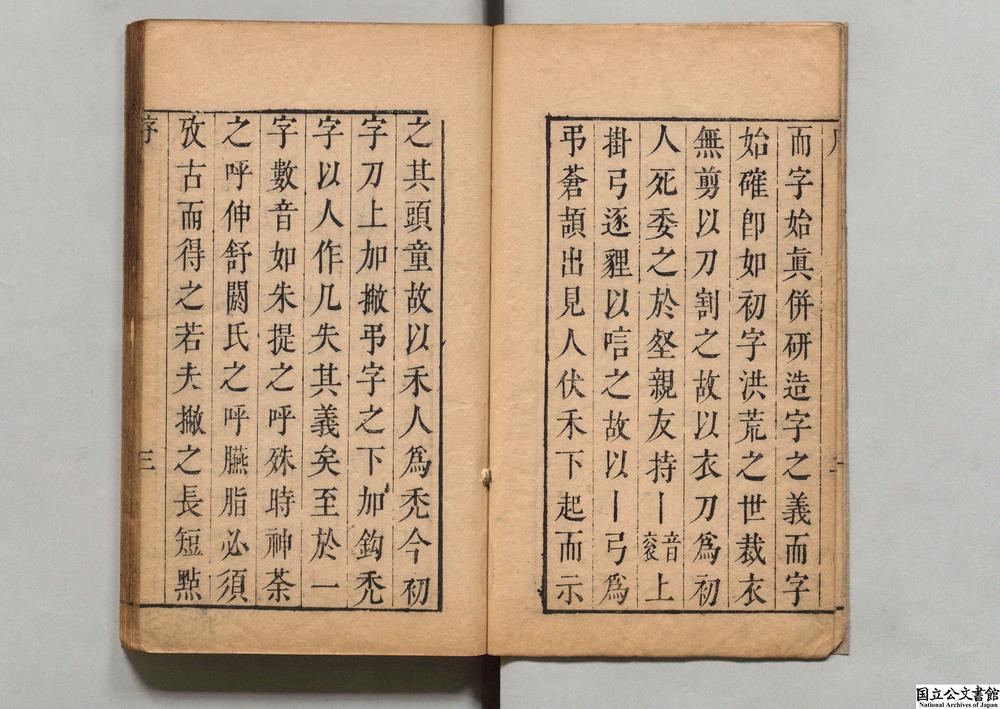 而字始眞併研造字之義而字
始確卽如初字洪荒之世裁衣
無剪以刀割之故以衣刀爲初
人死委之於壑親友持丨音衮上
掛弓逐貍以唁之故以丨弓爲
弔蒼頡出見人伏禾下起而示
之其頭童故以禾人爲禿今初
字刀上加撇弔字之下加鈎禿
字以人作几失其義矣至於一
字數音如朱提之呼殊時神荼
之呼伸舒閼氏之呼臙脂必須
攷古而得之若夫撇之長短點
序
三
国立公文書館
National Archives of Japan